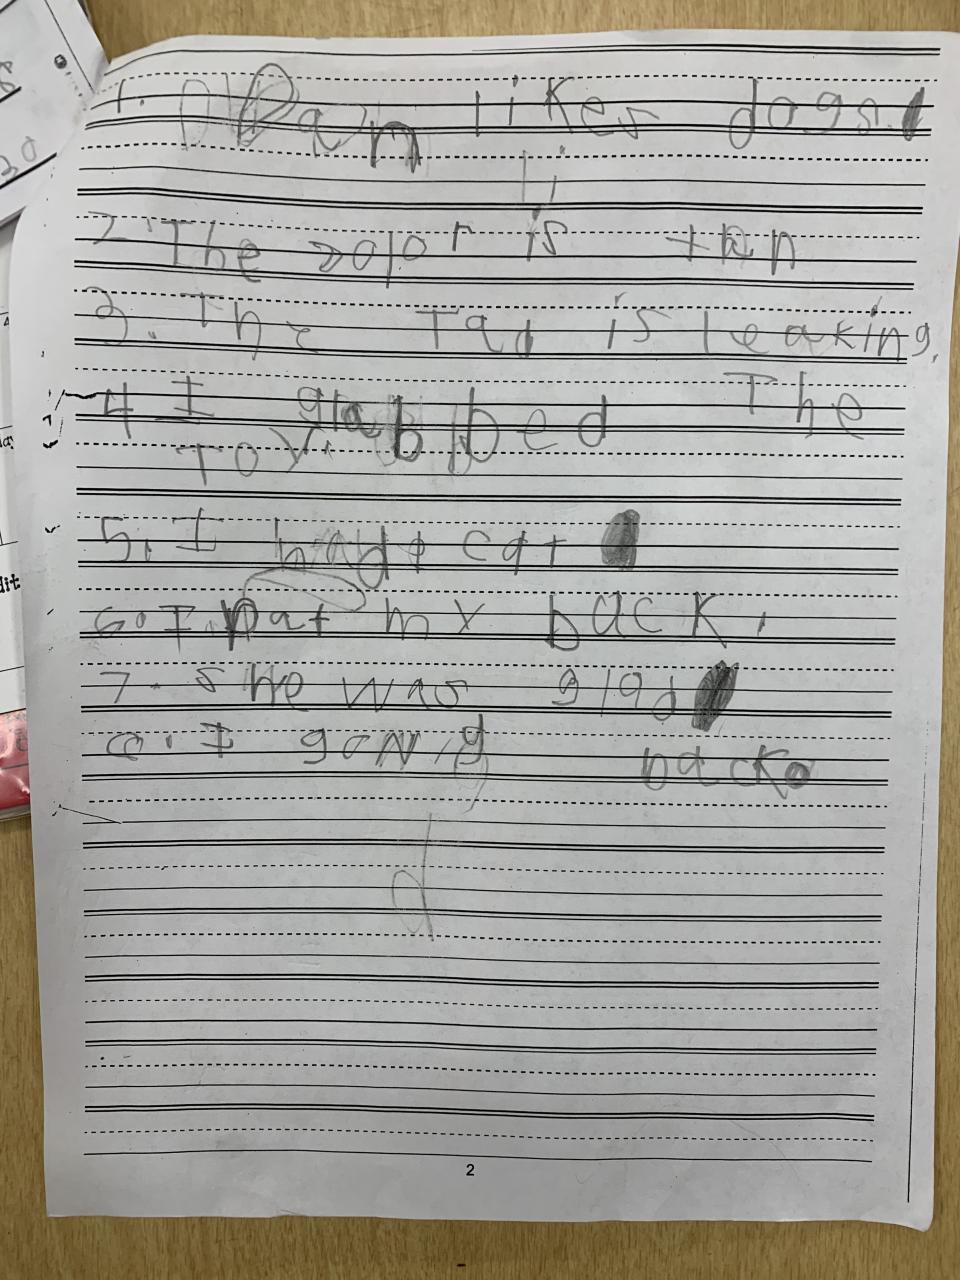 1. Dan likes dogs.
2. The color is tan
3. The Tap is leaking.
4 I grabbed The
Toy.
5. I had a cat
6. I pat my back.
7. She was glad
8. I gonig back.
d
2